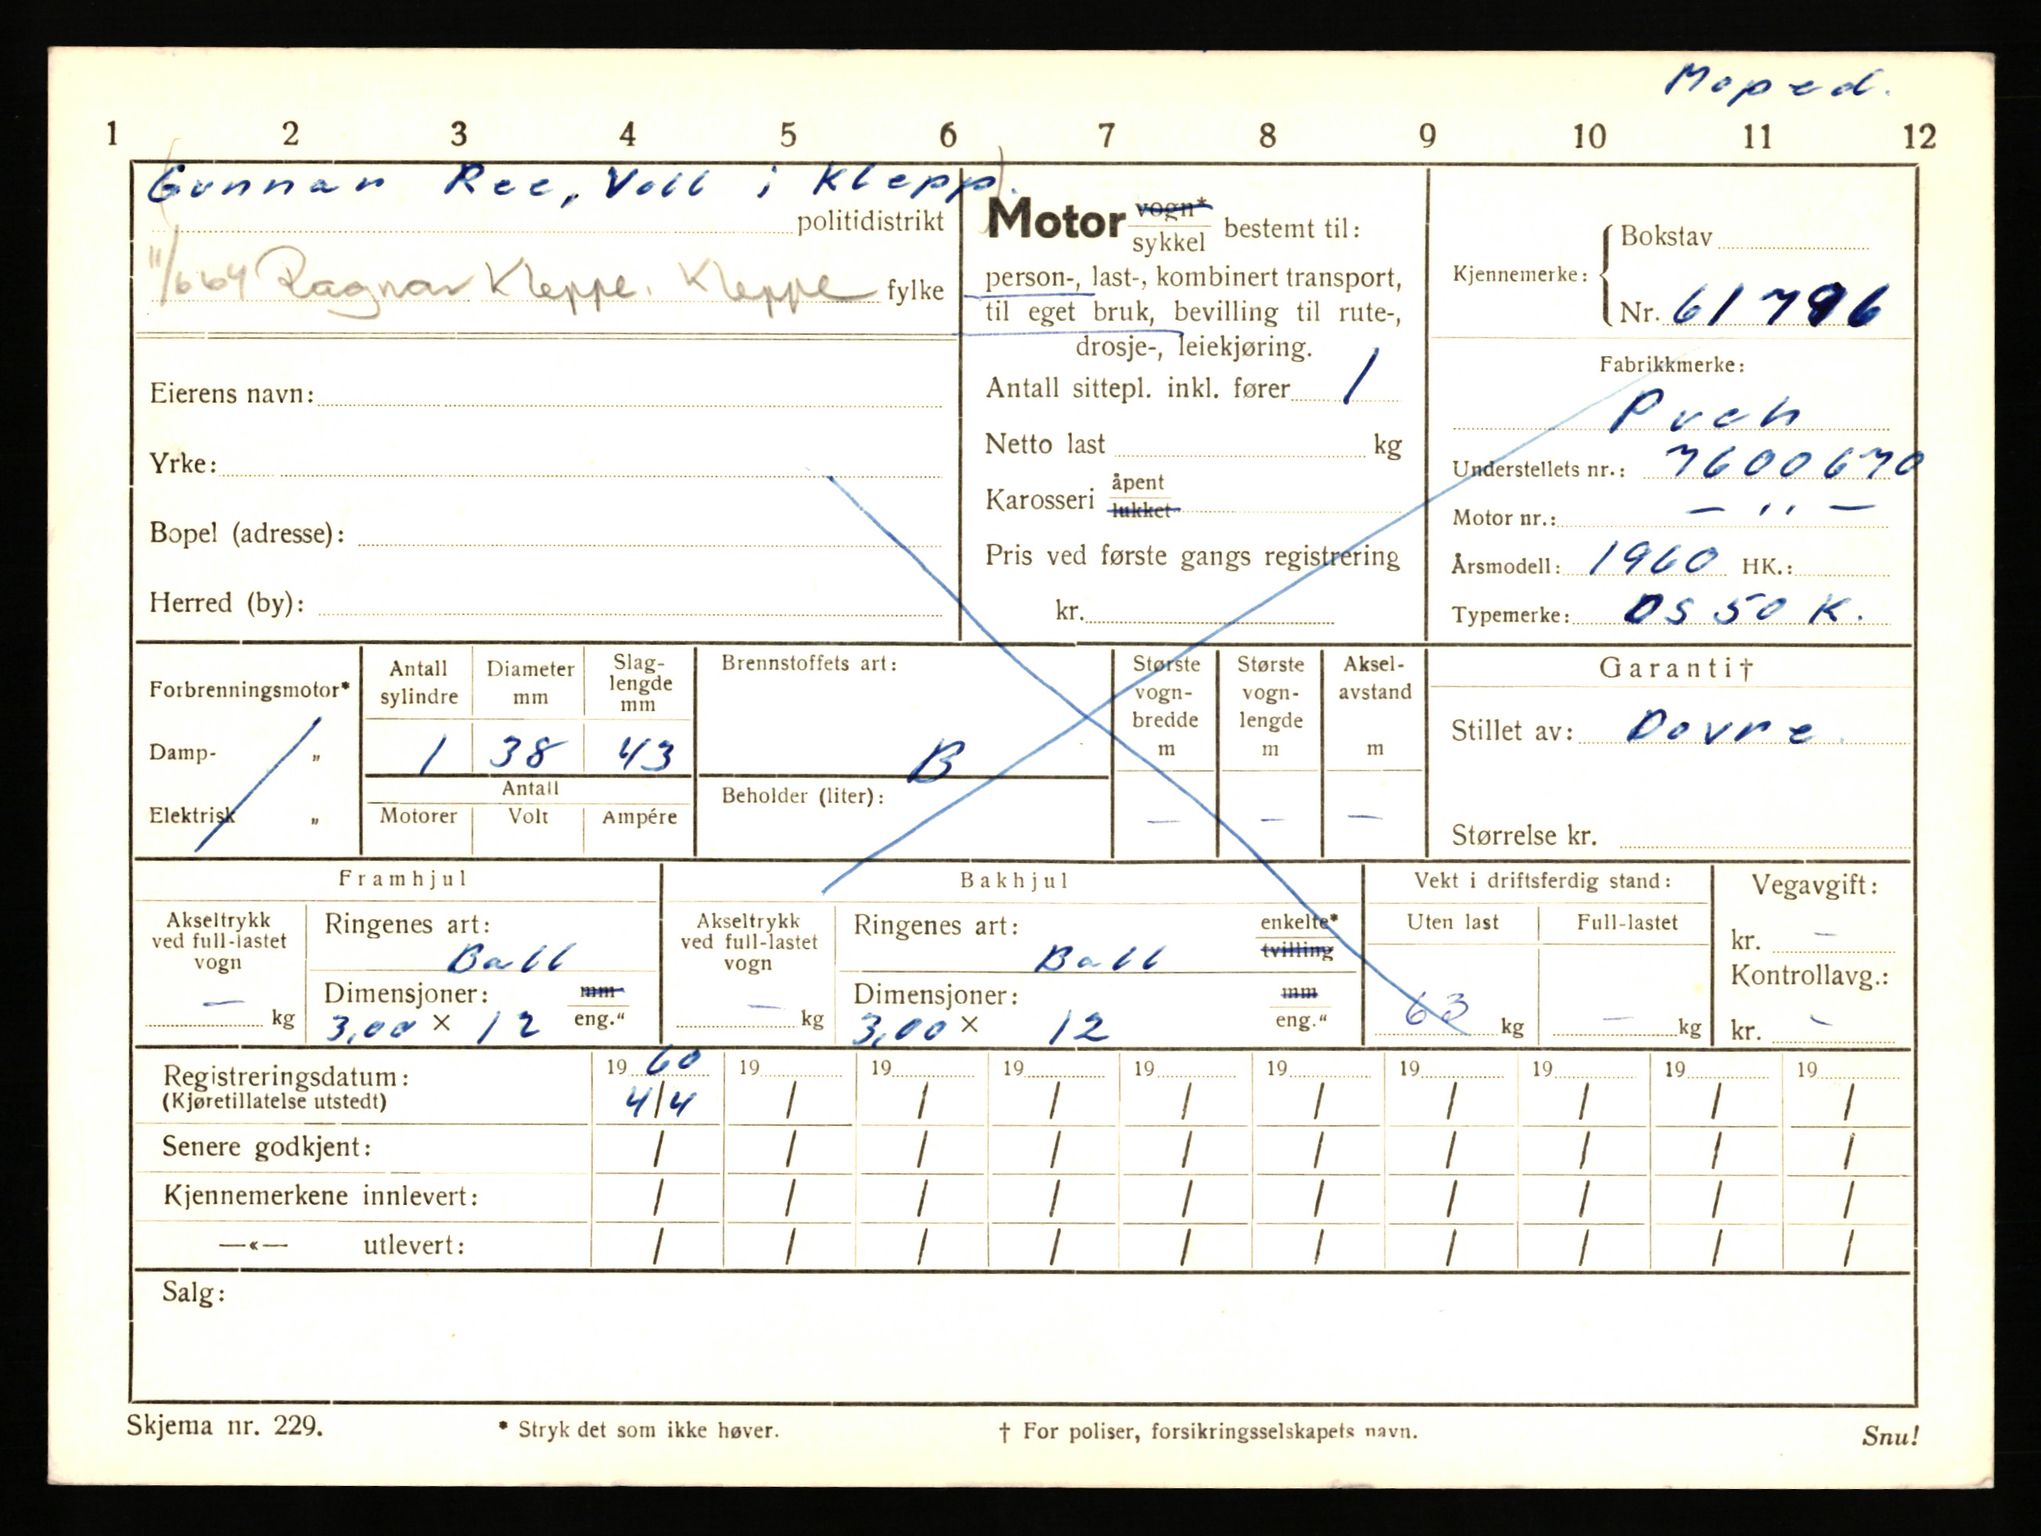 Moped.
1 2 3 4 5 6 7 8 9 10 11 12
Gunnar Ree, Voll i Klepp.
politidistrikt
11/6 64 Ragnar Kleppe. Kleppe fylke
Eierens navn:
Yrke:
Bopel (adresse):
Herred (by):
Motor vogn* sykkel bestemt til:
person-, last-, kombinert transport,
til eget bruk, bevilling til rute-,
drosje-, leiekjøring.
Antall sittepl. inkl. fører 1
Netto last kg
Karosseri åpent lukket
Pris ved første gangs registrering
kr.
Kjennemerke: Bokstav
Nr. 61796
Fabrikkmerke:
Puch
Understellets nr.: 7600670
Motor nr.: — '' —
Årsmodell: 1960 HK.:
Typemerke: DS 50 K.
Forbrenningsmotor*
Damp- „
Elektrisk „
Antall sylindre
Diameter mm
Slag-lengde mm
1 38 43
Antall
Motorer Volt Ampére
Brennstoffets art:
B
Beholder (liter):
Største vogn-bredde m
Største vogn-lengde m
Aksel-avstand m
— — —
Garanti†
Stillet av: Dovre.
Størrelse kr.
Framhjul
Akseltrykk ved full-lastet vogn
— kg
Ringenes art:
Ball
Dimensjoner: mm
3,00 × 12 eng."
Bakhjul
Akseltrykk ved full-lastet vogn
— kg
Ringenes art: enkelte*
Ball tvilling
Dimensjoner: mm
3,00 × 12 eng."
Vekt i driftsferdig stand:
Uten last Full-lastet
63 kg — kg
Vegavgift:
kr. —
Kontrollavg.:
kr. —
Registreringsdatum: 19 60 19 19 19 19 19 19 19 19 19
(Kjøretillatelse utstedt) 4/4 / / / / / / / / /
Senere godkjent: / / / / / / / / / /
Kjennemerkene innlevert: / / / / / / / / / /
—«— utlevert: / / / / / / / / / /
Salg:
Skjema nr. 229. * Stryk det som ikke høver. † For poliser, forsikringsselskapets navn. Snu!